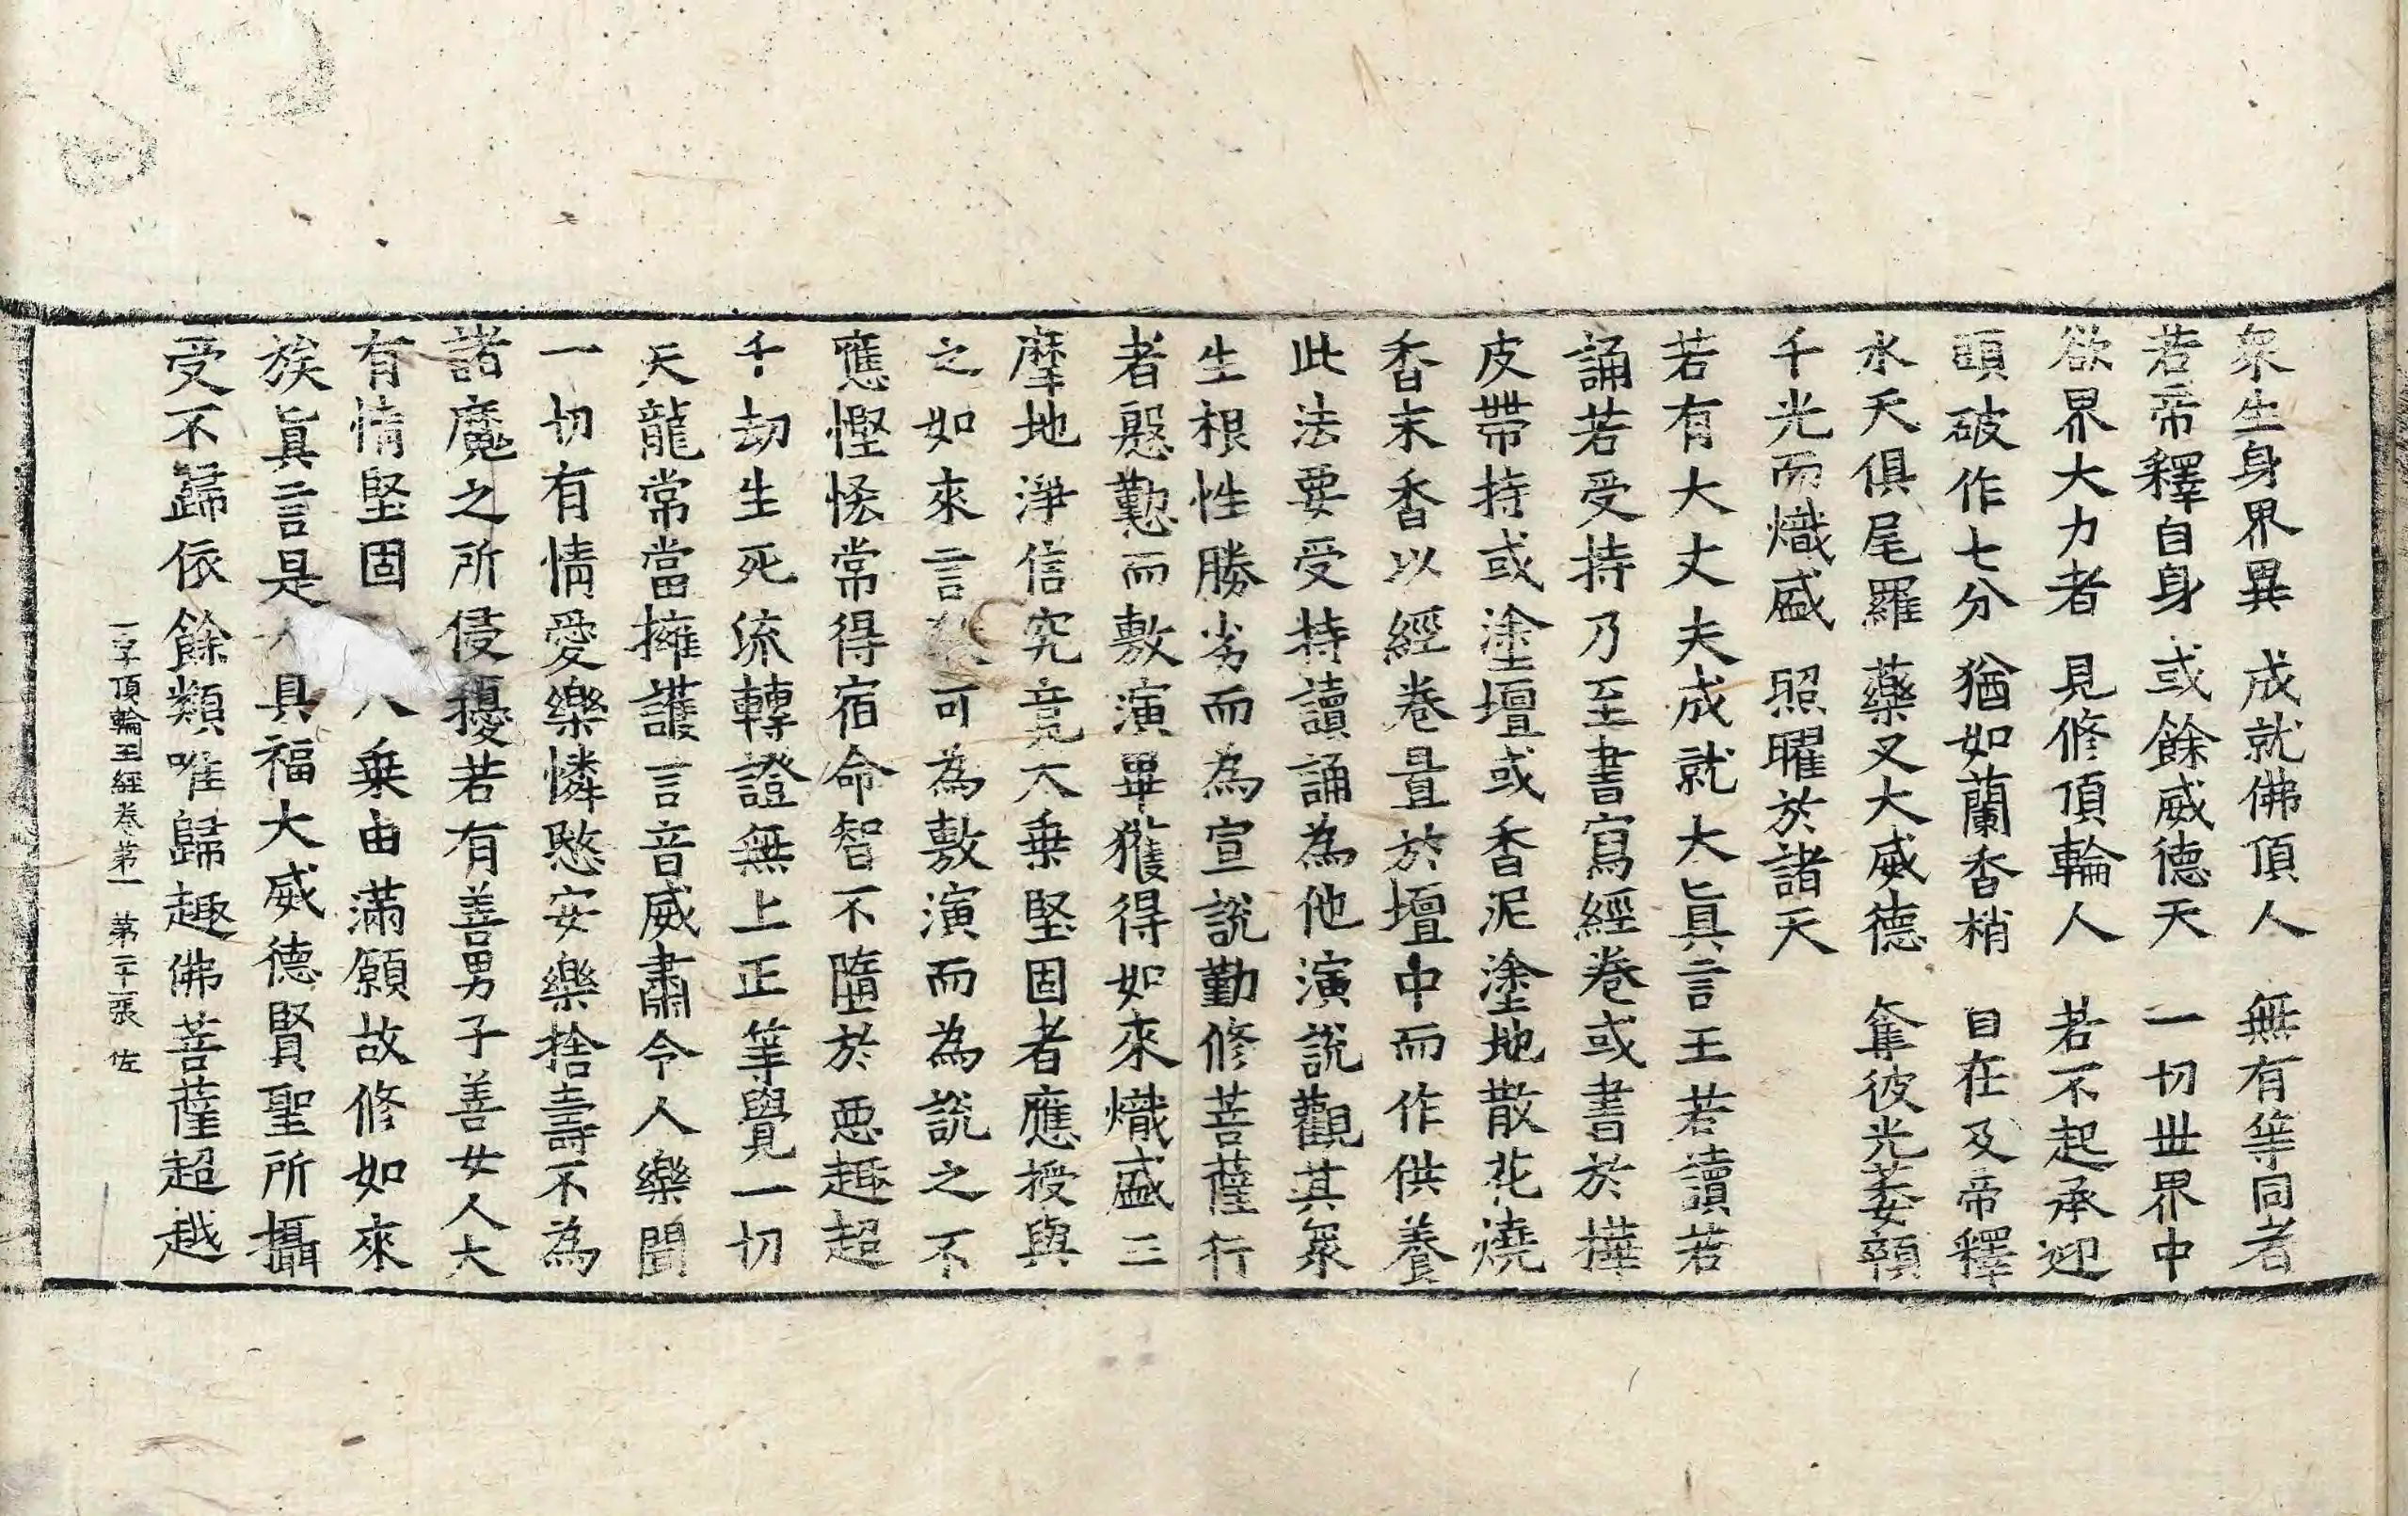 衆生身界異　成就佛頂人　無有等同者
若帝釋自身　或餘威德天　一切世界中
欲界大力者　見修頂輪人　若不起承迎
頭破作七分　猶如蘭香梢　自在及帝釋
水天俱尾羅　藥叉大威德　奪彼光萎顇
千光而熾盛　照曜於諸天
若有大丈夫成就大眞言王若讀若
誦若受持乃至書寫經卷或書於樺
皮帶持或塗壇或香泥塗地散花燒
香末香以經卷置於壇中而作供養
此法要受持讀誦為他演說觀其衆
生根性勝劣而為宣說勤修菩薩行
者慇懃而敷演畢獲得如來熾盛三
摩地淨信究竟大乗堅固者應授與
之如來言可為敷演而為說之不
應慳悋常得宿命智不墮於惡趣超
千劫生死流轉證無上正等覺一切
天龍常當擁護言音威肅令人樂聞
一切有情愛樂憐愍安樂捨壽不為
諸魔之所侵擾若有善男子善女人大
有情堅固乗由滿願故修如來
族眞言是具福大威德賢聖所攝
受不歸依餘類唯歸趣佛菩薩超越
一字頂輪王經卷第一　第二十二張　佐